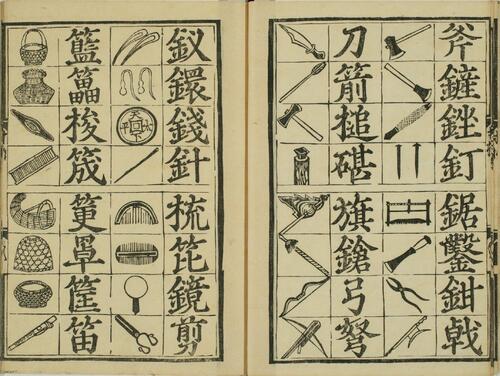 斧鏟銼釘鋸鑿鉗戟
刀箭槌碪旗鎗弓弩
釵鐶錢針梳笓鏡剪
天下太平
籃梭筬罩筐笛